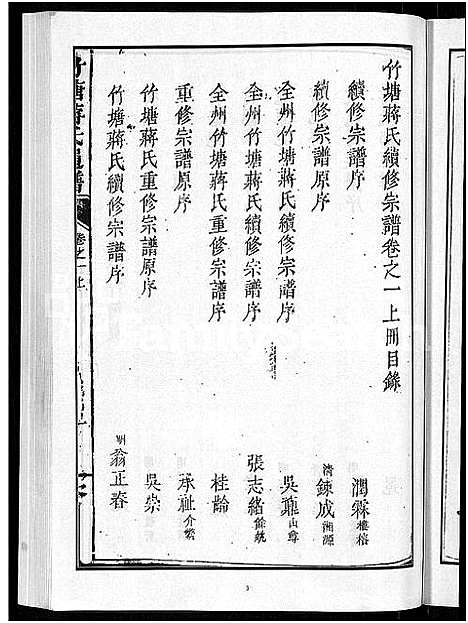 竹塘蔣氏續修宗譜卷之一上冊目錄
續修宗譜序 潤霖樓榕
續修宗譜原序 清鍊成溯源
全州竹塘蔣氏續修宗譜序 吳鼒山尊
全州竹塘蔣氏續修宗譜序 張志緒餘航
全州竹塘蔣氏重修宗譜序 桂齡
重修宗譜原序 承祉介繁
竹塘蔣氏重修宗譜原序 吳崇
竹塘蔣氏續修宗譜序 明翁正春
竹塘蔣氏通譜
卷之一上